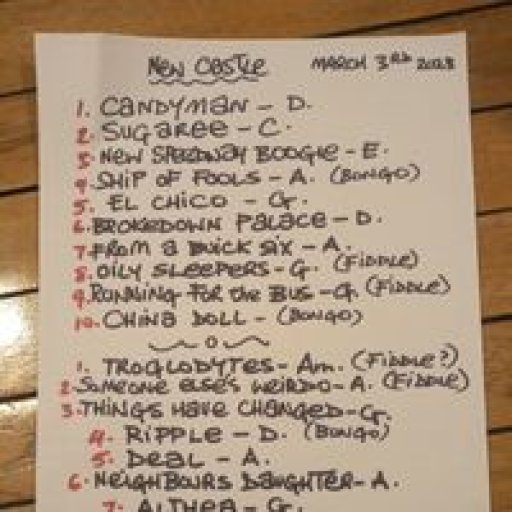 New Castle MARCH 3RD 2023
1. CANDYMAN - D.
2. SUGAREE - C.
3. NEW SPEEDWAY BOOGIE - E.
4. SHIP OF FOOLS - A. (BONGO)
5. EL CHICO - G.
6. BROKEDOWN PALACE - D.
7. FROM a BUICK SIX - A.
8. OILY SLEEPERS - G. (FIDDLE)
9. RUNNING FOR the BUS - G. (FIDDLE)
10. CHINA DOLL - (BONGO)
1. TROGLODYTES - Am. (FIDDLE?)
2. SOMEONE ELSE'S WEIRDO - A. (FIDDLE)
3. THINGS HAVE CHANGED - G.
4. RIPPLE - D. (BONGO)
5. DEAL - A.
6. NEIGHBOURS DAUGHTER - A.
7. ALTHEA - G.